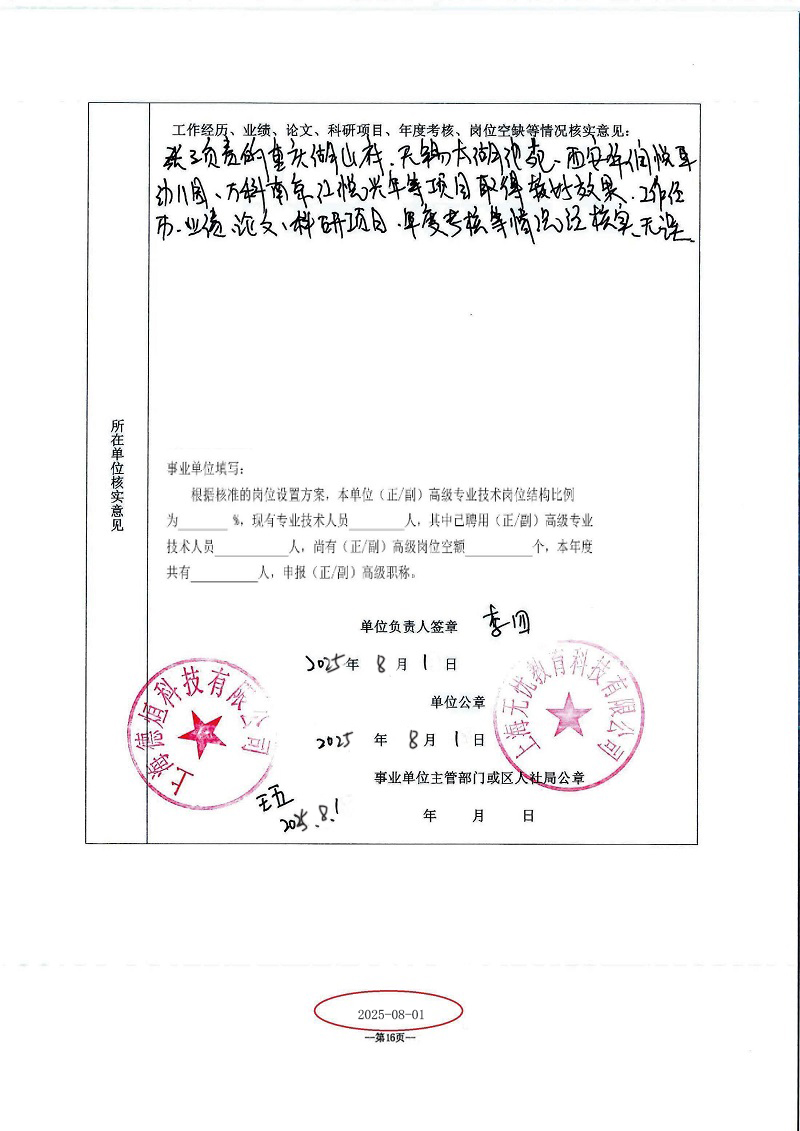 工作经历、业绩、论文、科研项目、年度考核、岗位空缺等情况核实意见：
张三负责的重庆湖山村、无锡太湖、西安华润悦府
幼儿园、万科南京江悦兴年等项目取得较好效果、工作经
历、业绩、论文、科研项目、年度考核等情况经核实、无误。
所在单位核实意见
事业单位填写：
根据核准的岗位设置方案，本单位（正/副）高级专业技术岗位结构比例
为______ %，现有专业技术人员______人，其中已聘用（正/副）高级专业
技术人员________人，尚有（正/副）高级岗位空额________个，本年度
共有________人，申报（正/副）高级职称。
单位负责人签章 李四
2025年 8月1日
单位公章
2025 年 8月1日
事业单位主管部门或区人社局公章
年 月 日
上海德垣科技有限公司
上海无忧教育科技有限公司
王五
2025.8.1
2025-08-01
—第16页—